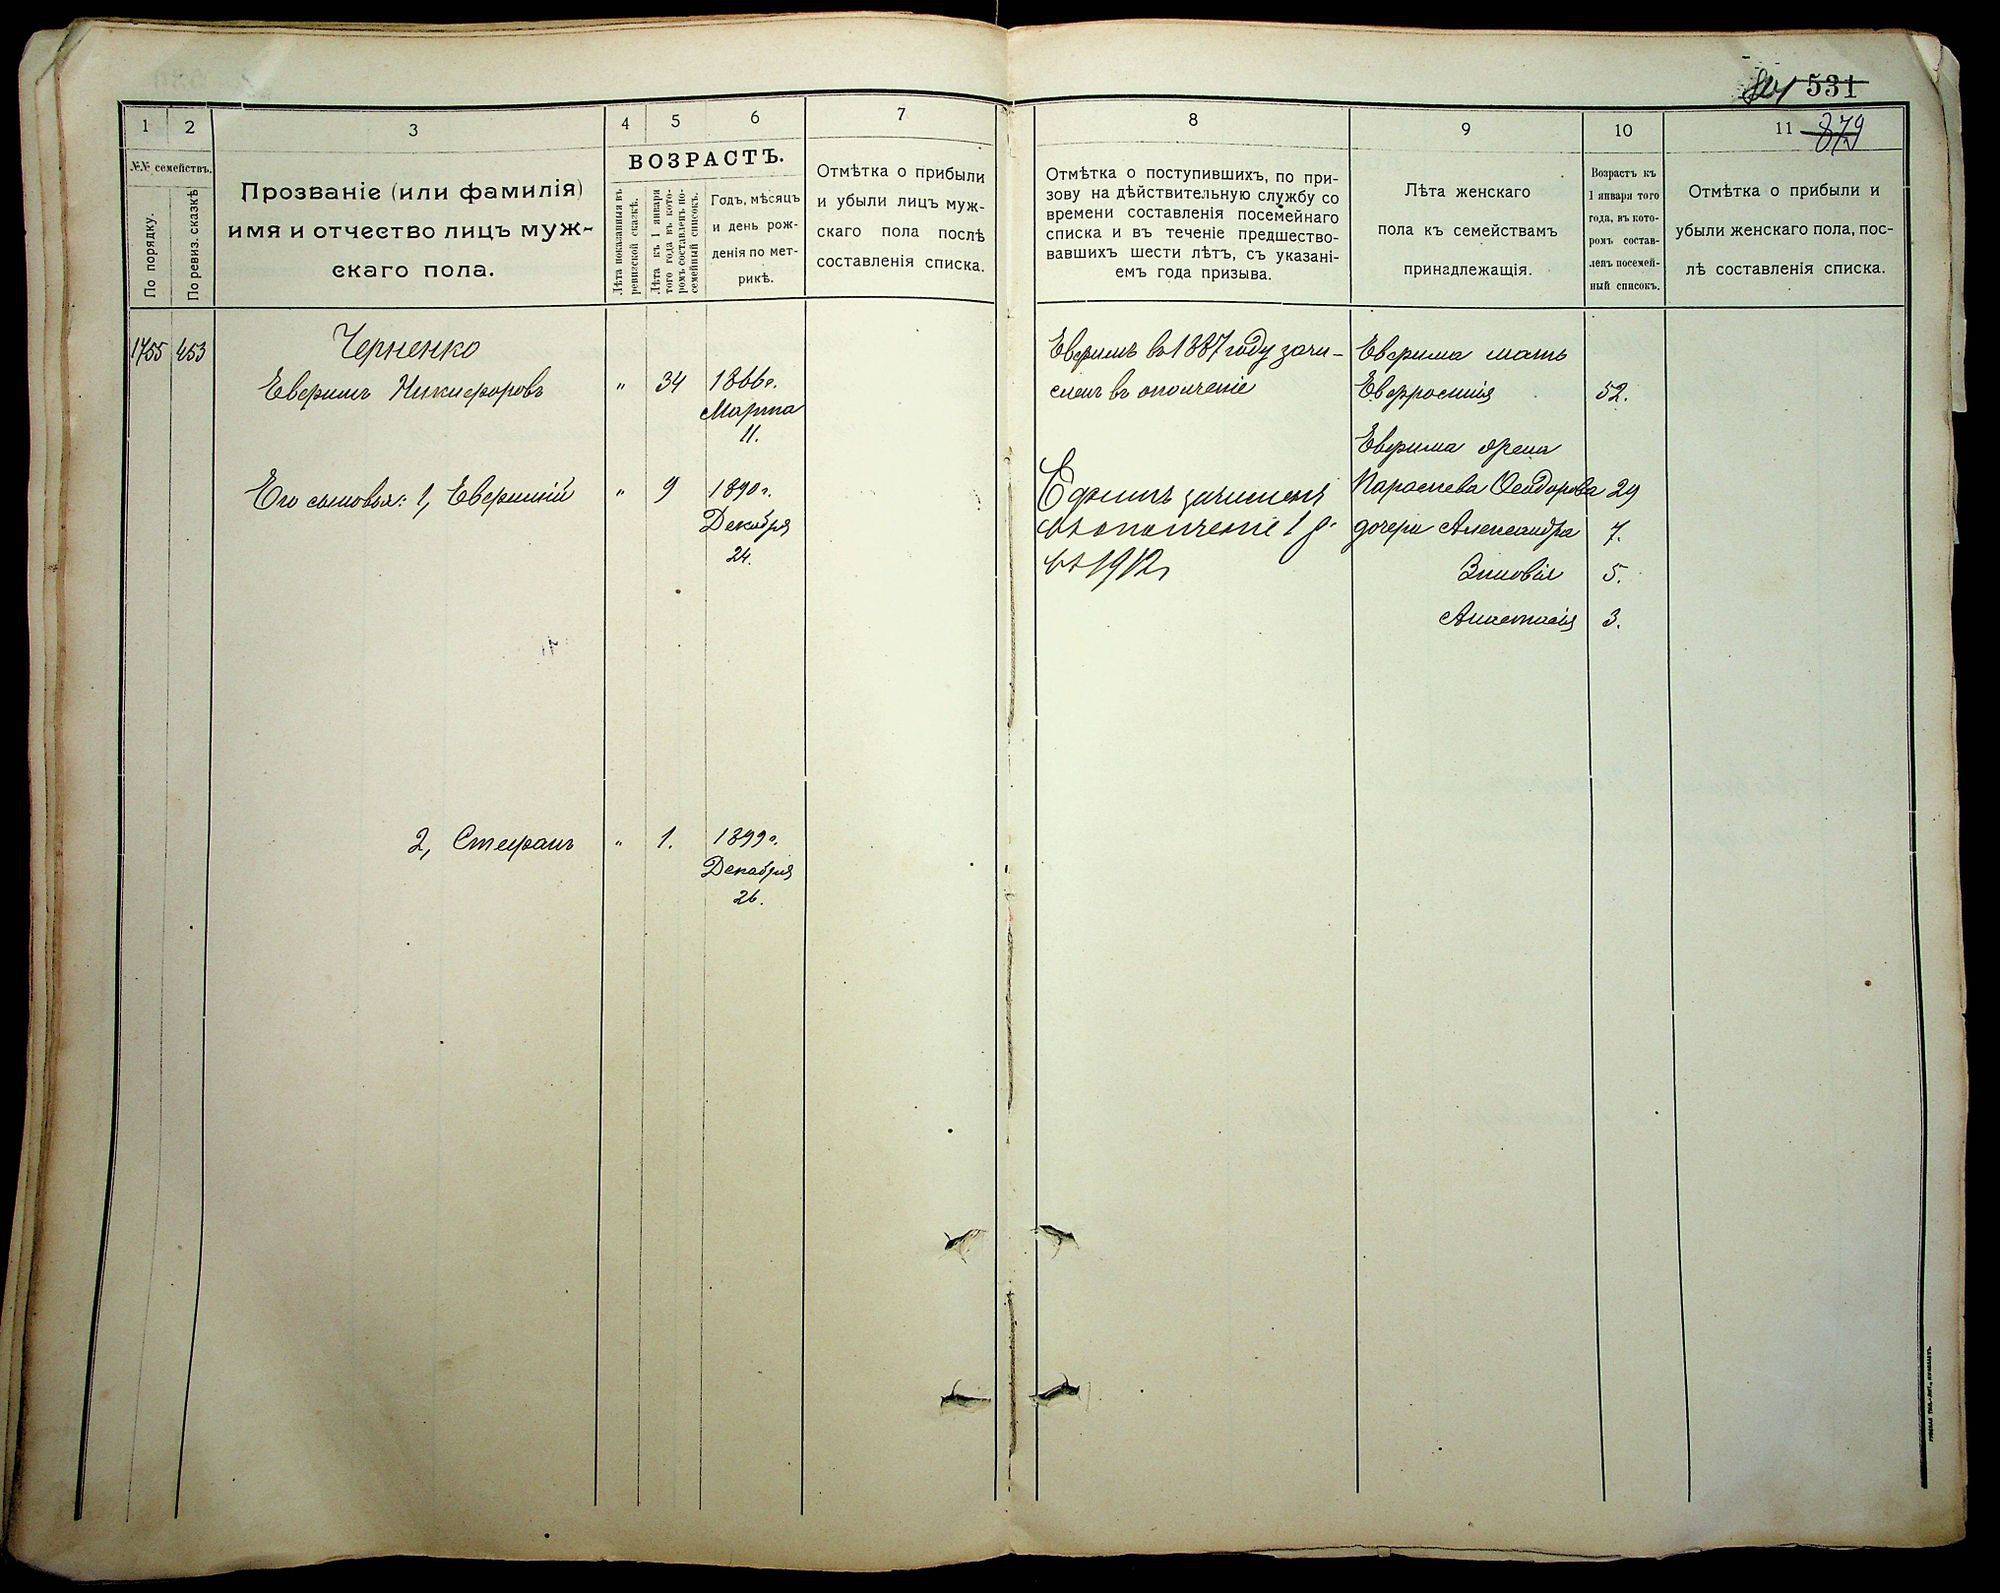 531
879
1
2
3
4
5
6
7
№№ семействъ.
По порядку.
По ревиз. сказкѣ
Прозваніе (или фамилія)
имя и отчество лицъ муж-
скаго пола.
ВОЗРАСТЪ.
Лѣта показанныя въ
ревизской сказкѣ.
Лѣта къ 1 января
того года въ кото-
ромъ составленъ по-
семейный списокъ.
Годъ, мѣсяцъ
и день рож-
денія по мет-
рикѣ.
Отмѣтка о прибыли
и убыли лицъ муж-
скаго пола послѣ
составленія списка.
1755 453 Черненко
Евфимъ Никифоровъ " 34 1866 г.
Марта
11.
Его сыновья: 1, Евфимій " 9 1890 г.
Декабря
24.
2, Стефанъ " 1. 1899 г.
Декабря
26.
8
9
10
11
Отмѣтка о поступившихъ, по при-
зову на дѣйствительную службу со
времени составленія посемейнаго
списка и въ теченіе предшество-
вавшихъ шести лѣтъ, съ указані-
емъ года призыва.
Лѣта женскаго
пола къ семействамъ
принадлежащія.
Возрастъ къ
1 января того
года, въ кото-
ромъ состав-
ленъ посемей-
ный списокъ.
Отмѣтка о прибыли и
убыли женскаго пола, пос-
лѣ составленія списка.
Евфимъ въ 1887 году зачи-
сленъ въ ополченіе
зачисленъ
въ ополченіе 1 р.
въ 1912 г
Евфима мать
Евфросинія 52.
Евфима жена
Параскева Феодорова 29
дочери Александра 7.
Зиновія 5.
Анастасія 3.